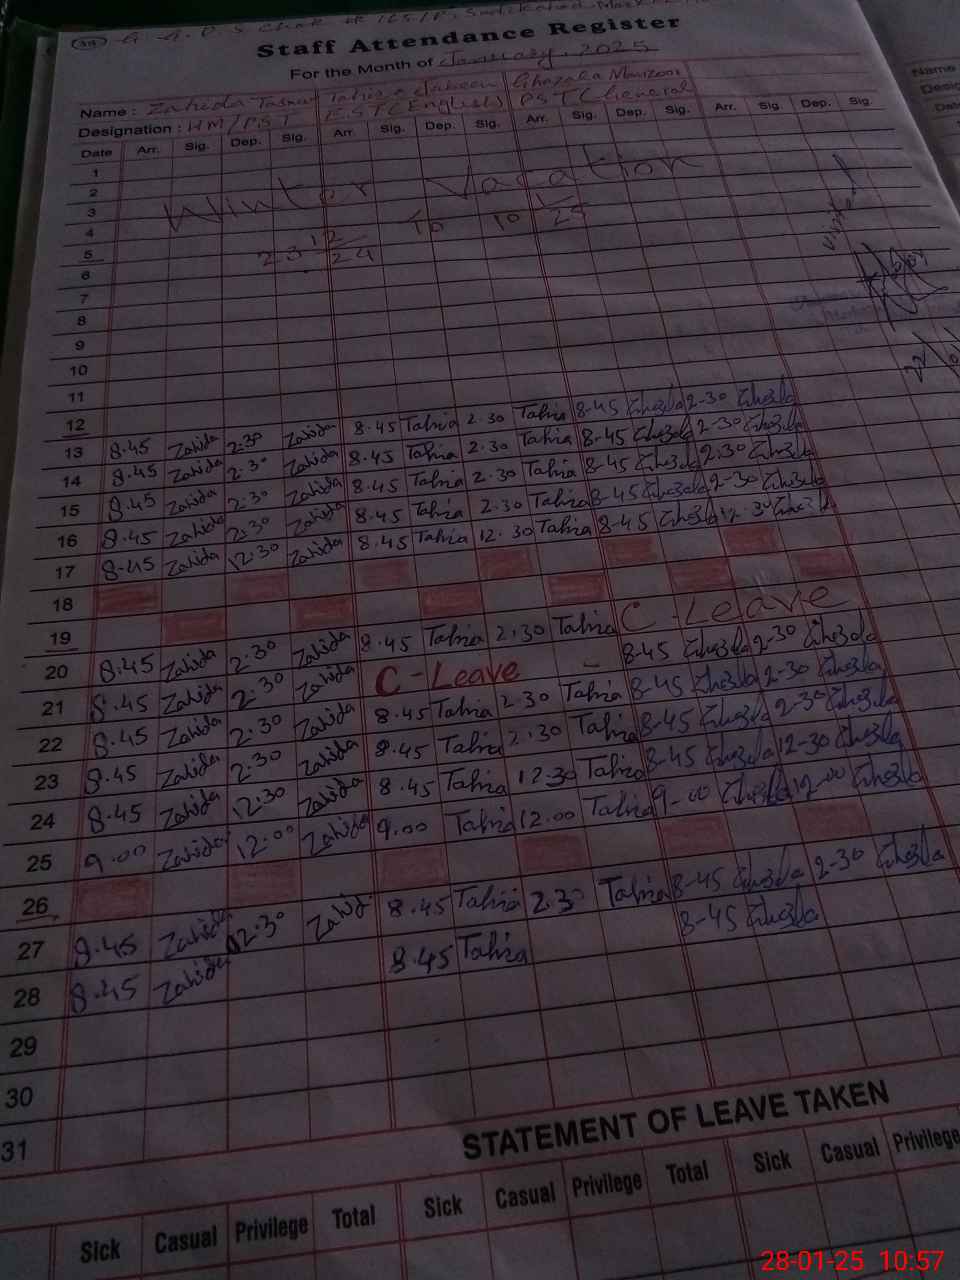 Staff Attendance Register
For the Month of January, 2025
Name : Zahida Tasneem Tahira Jabeen Ghazala Manzoor
Designation : HM/PST EST(English) PST(General
Date Arr. Sig. Dep. Sig. Arr. Sig. Dep. Sig. Arr. Sig. Dep. Sig. Arr. Sig. Dep. Sig.
1
2
3
Winter Vacation
4
23 12/24 To 10 1/25
5
6
7
8
9
10
11
12
13 8.45 Zahida 2:30 Zahida 8.45 Tahira 2.30 Tahira 8-45 Ghazala 2-30 Ghazala
14 8.45 Zahida 2:30 Zahida 8.45 Tahira 2.30 Tahira 8-45 Ghazala 2-30 Ghazala
15 8.45 Zahida 2:30 Zahida 8.45 Tahira 2.30 Tahira 8-45 Ghazala 2:30 Ghazala
16 8.45 Zahida 2:30 Zahida 8.45 Tahira 2.30 Tahira 8-45 Ghazala 2-30 Ghazala
17 8.45 Zahida 12:30 Zahida 8.45 Tahira 12.30 Tahira 8-45 Ghazala 12-30 Ghazala
18
19
20 8:45 Zahida 2:30 Zahida 8.45 Tahira 2:30 Tahira C-Leave
21 8.45 Zahida 2:30 Zahida C-Leave 8-45 Ghazala 2-30 Ghazala
22 8.45 Zahida 2:30 Zahida 8.45 Tahira 2.30 Tahira 8-45 Ghazala 2-30 Ghazala
23 8.45 Zahida 2:30 Zahida 8.45 Tahira 2:30 Tahira 8-45 Ghazala 2-30 Ghazala
24 8.45 Zahida 12:30 Zahida 8.45 Tahira 12.30 Tahira 8-45 Ghazala 12-30 Ghazala
25 9.00 Zahida 12:00 Zahida 9.00 Tahira 12.00 Tahira 9-00 Ghazala 12-00 Ghazala
26
27 8.45 Zahida 02:30 Zahida 8.45 Tahira 2.30 Tahira 8-45 Ghazala 2-30 Ghazala
28 8.45 Zahida 8.45 Tahira 8-45 Ghazala
29
30
31
STATEMENT OF LEAVE TAKEN
Sick Casual Privilege Total Sick Casual Privilege Total Sick Casual Privilege
Name
28-01-25 10:57